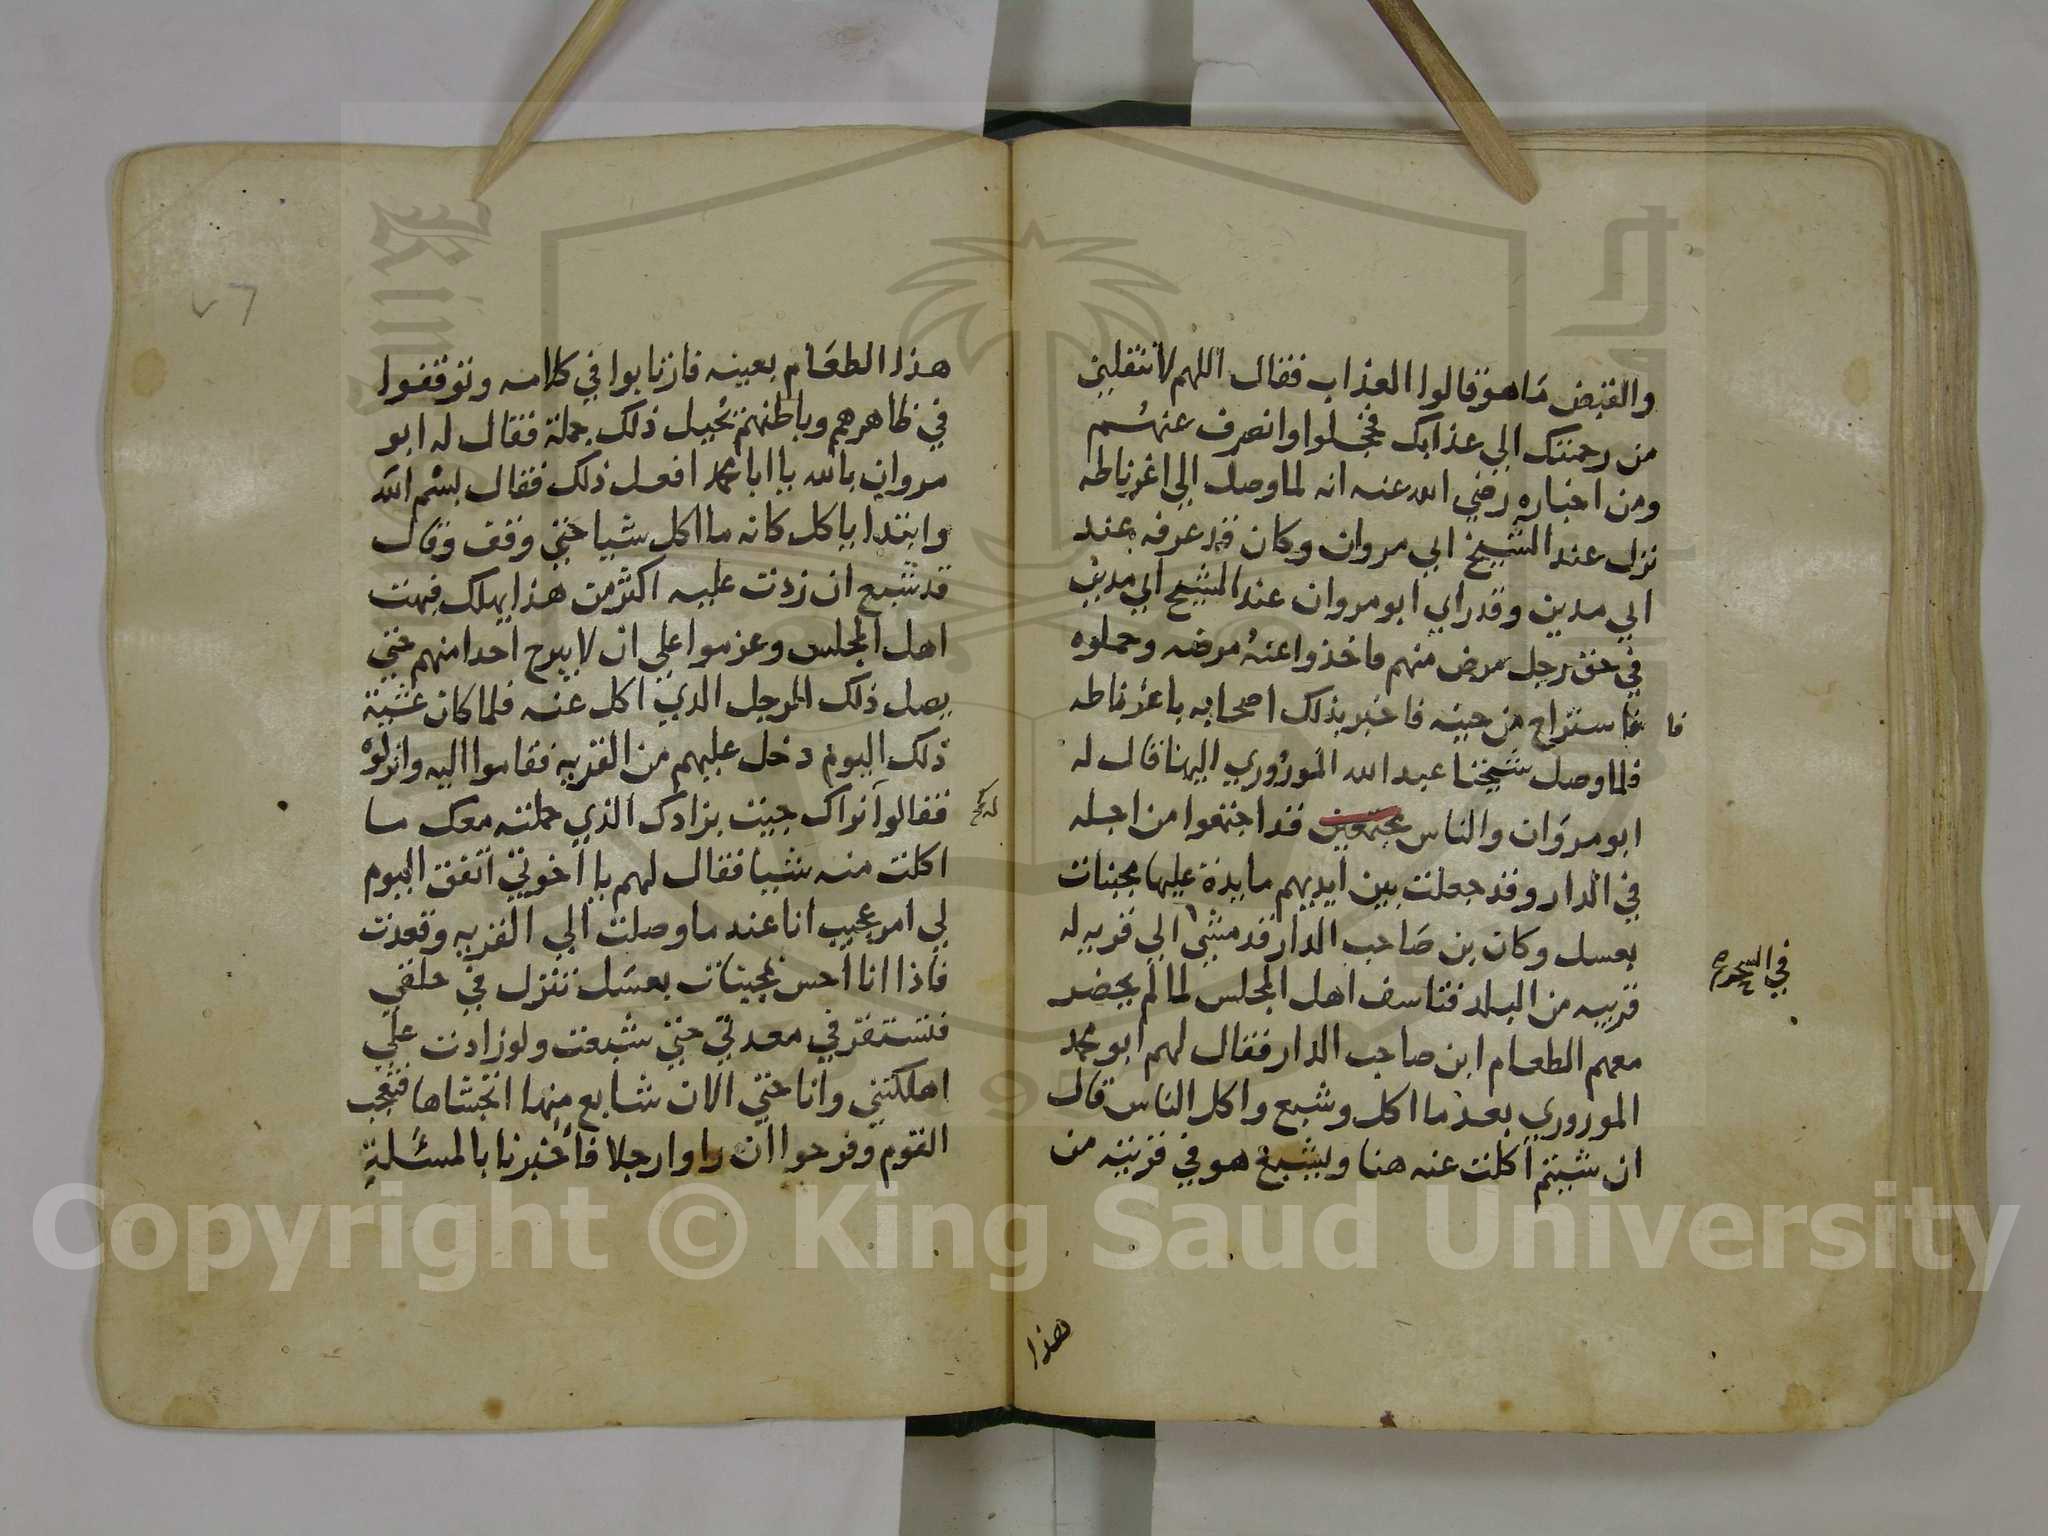 والقبض ما هو قالوا العذاب فقال اللهم لا تنقلني
من رحمتك الي عذابك فخجلوا وانصرف عنهم
ومن اخباره رضي الله عنه انه لما وصل الي اغرناطه
نزل عند الشيخ ابي مروان وكان قد عرفه عند
ابي مدين وقد راي ابو مروان عند الشيخ ابي مدين
في حق رجل مرض منهم فاخذوا عنه مرضه وحملوه
فا
فاستراح من حينه فاخبر بذلك اصحابه باغرناطه
فلما وصل شيخنا عبد الله الموروري الينا قال له
ابو مروان والناس مجتمعين قد اجتمعوا من اجله
في الدار وقد جعلت بين ايديهم مايدة عليها مجبنات
بعسل وكان بن صاحب الدار قد مشي الي قريه له
قريبه من البلد فتاسف اهل المجلس لما لم يحضر
معهم الطعام ابن صاحب الدار فقال لهم ابو محمد
الموروري بعد ما اكل وشبع واكل الناس قال
ان شيتم اكلت عنه هنا ويشبع هو في قريته من
هذا
هذا الطعام بعينه فارتابوا في كلامه وتوقفوا
في ظاهرهم وباطنهم تخيل ذلك جملة فقال له ابو
مروان بالله يا ابا محمد افعل ذلك فقال بسم الله
وابتدا ياكل كانه ما اكل شيا حتي وقف وقال
قد شبع ان زدت عليه اكثر من هذا يهلك فبهت
اهل المجلس وعزموا علي ان لا يبرح احدا منهم حتي
يصل ذلك الرجل الذي اكل عنه فلما كان عشية
ذلك اليوم دخل عليهم من القريه فقاموا اليه وانزلوه
فقالوا نراك جيت بزادك الذي حملته معك ما
اكلت منه شيا فقال لهم يا اخوتي اتفق اليوم
لي امر عجيب انا عند ما وصلت الي القريه وقعدت
فاذا انا احس بمجبنات بعسل تنزل في حلقي
فتستقر في معدتي حتي شبعت ولو زادت علي
اهلكتني وانا حتي الان شابع منها اتجشاها فتعجب
القوم وفرحوا ان راوا رجلا فاخبرنا بالمسئلة